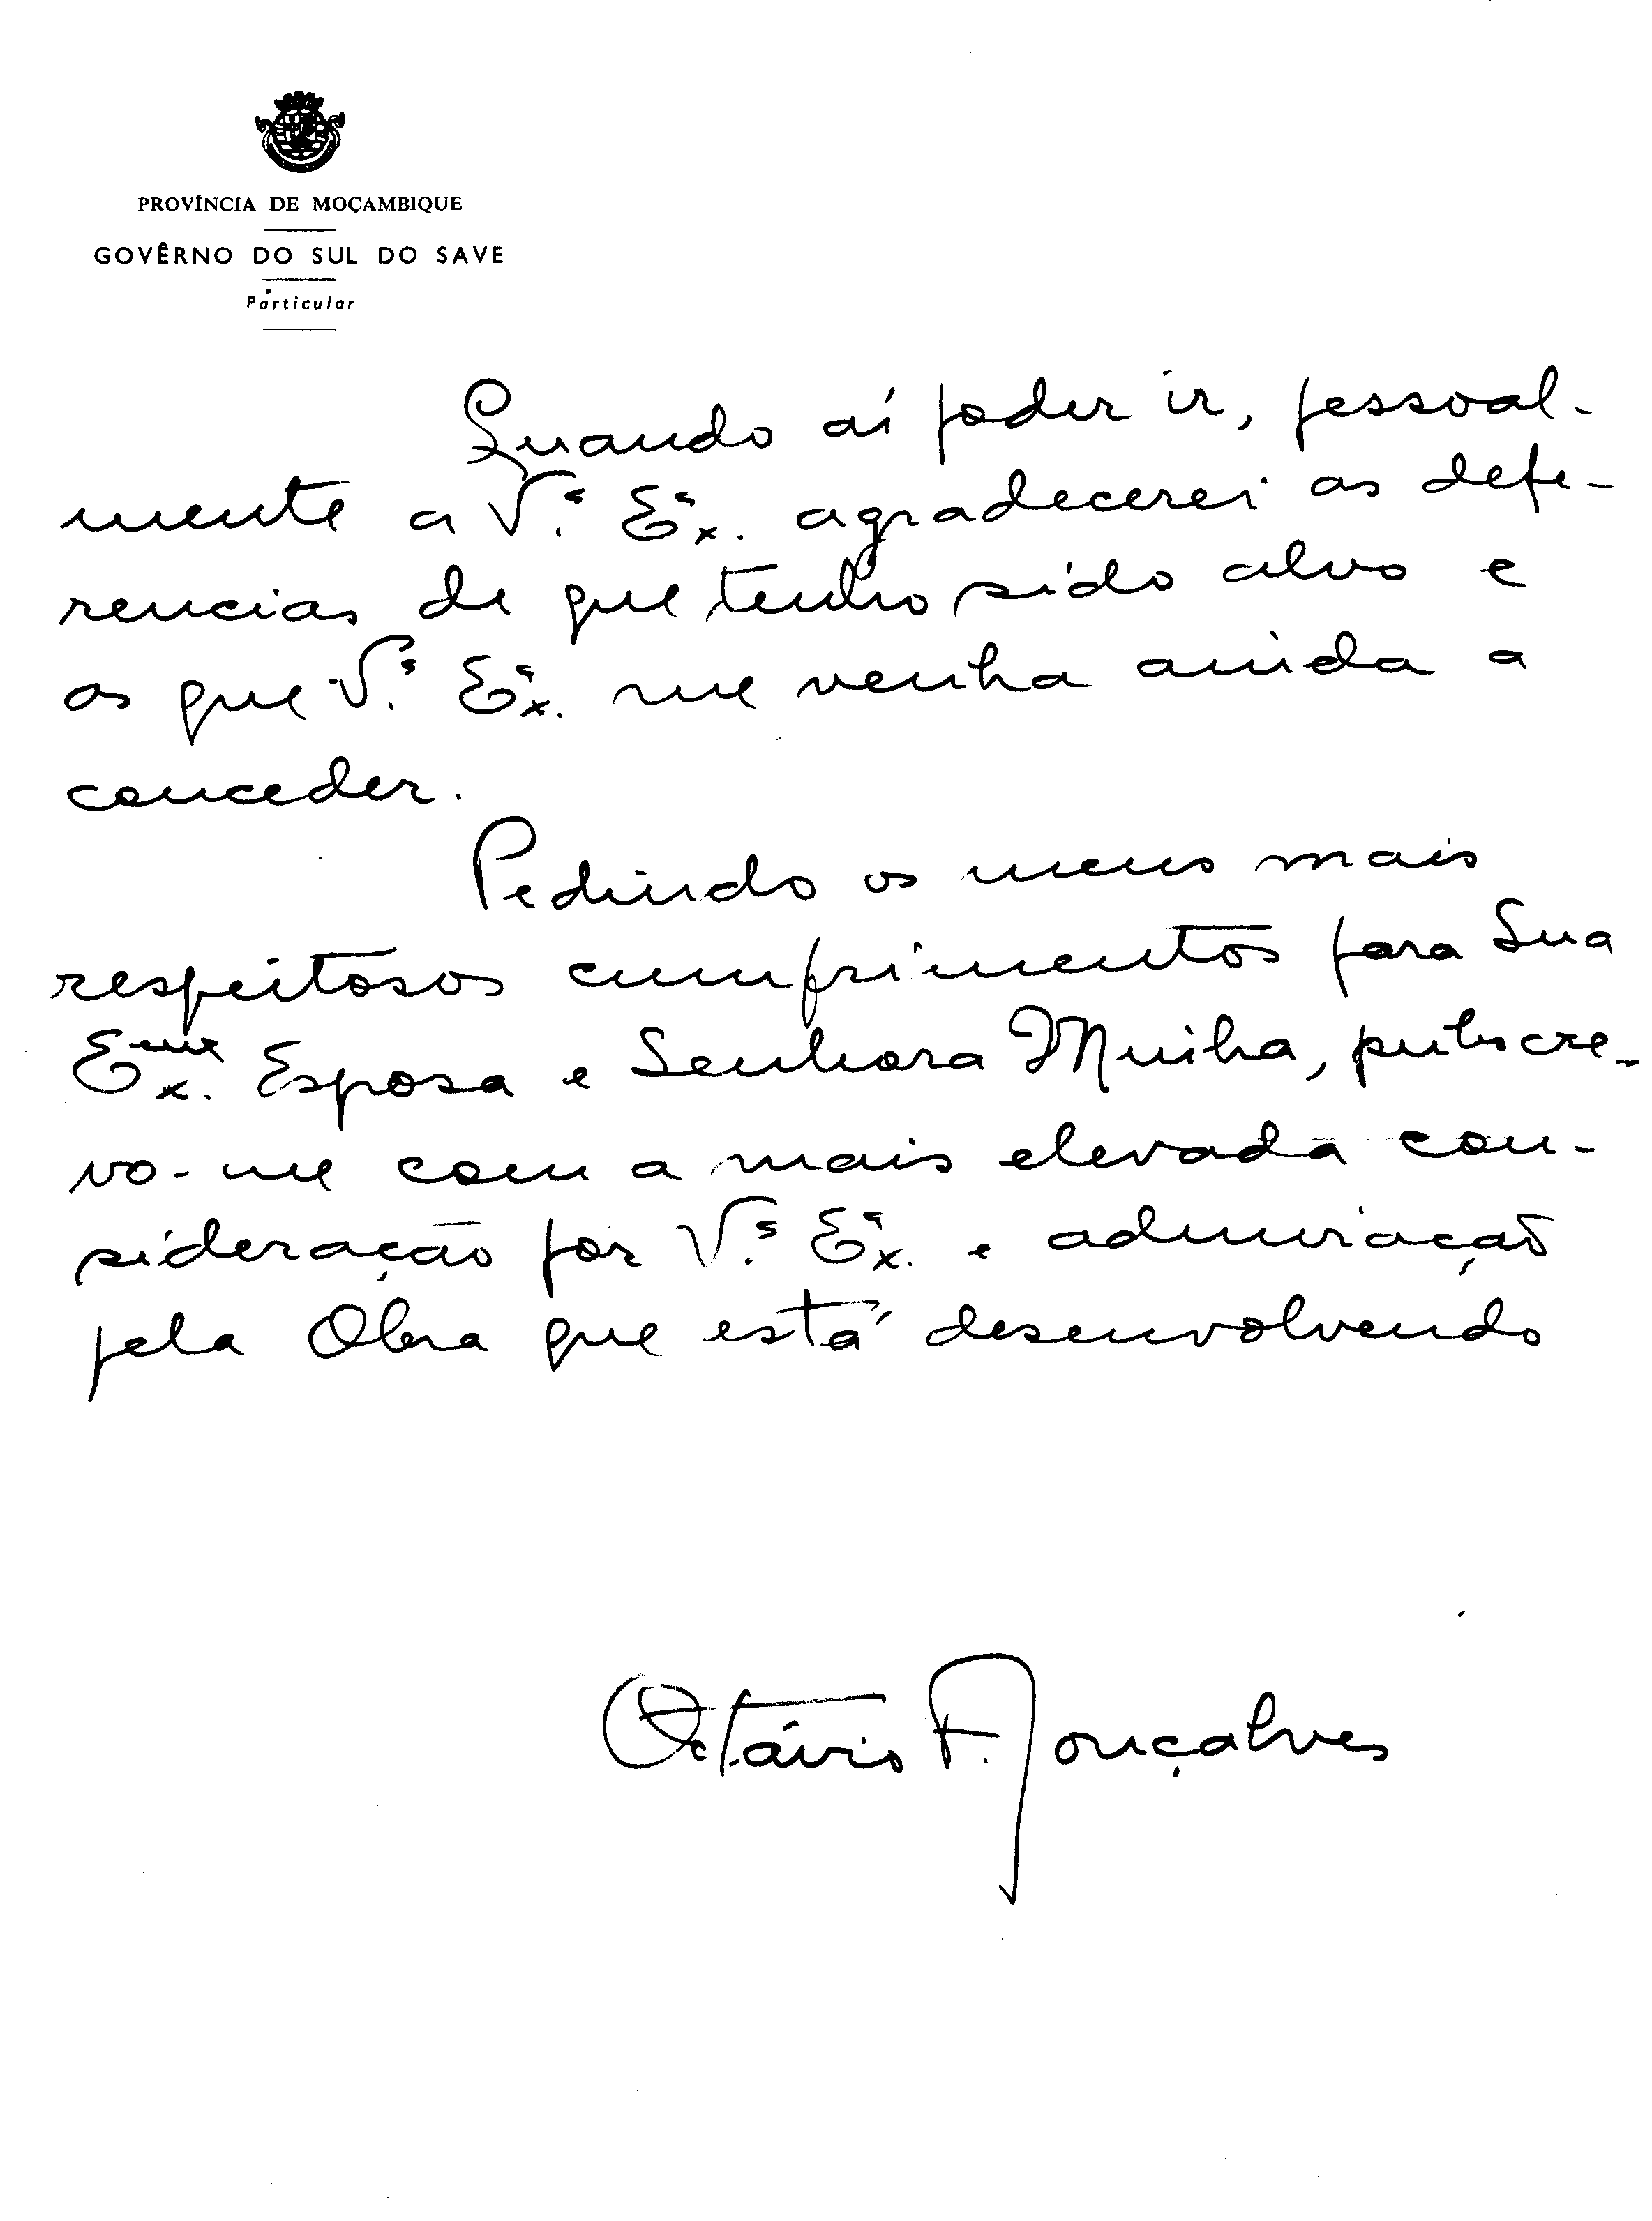 PROVÍNCIA DE MOÇAMBIQUE
GOVÊRNO DO SUL DO SAVE
Particular
Quando aí poder ir, pessoal-
mente a V.ª Ex.ª agradecerei as defe-
rencias de que tenho sido alvo e
as que V.ª Ex.ª me venha ainda a
conceder.
Pedindo os meus mais
respeitosos cumprimentos para Sua
Ex.ma Esposa e Senhora Minha, subscre-
vo-me com a mais elevada con-
sideração por V.ª Ex.ª e admiração
pela Obra que está desenvolvendo
Octávio F. Gonçalves